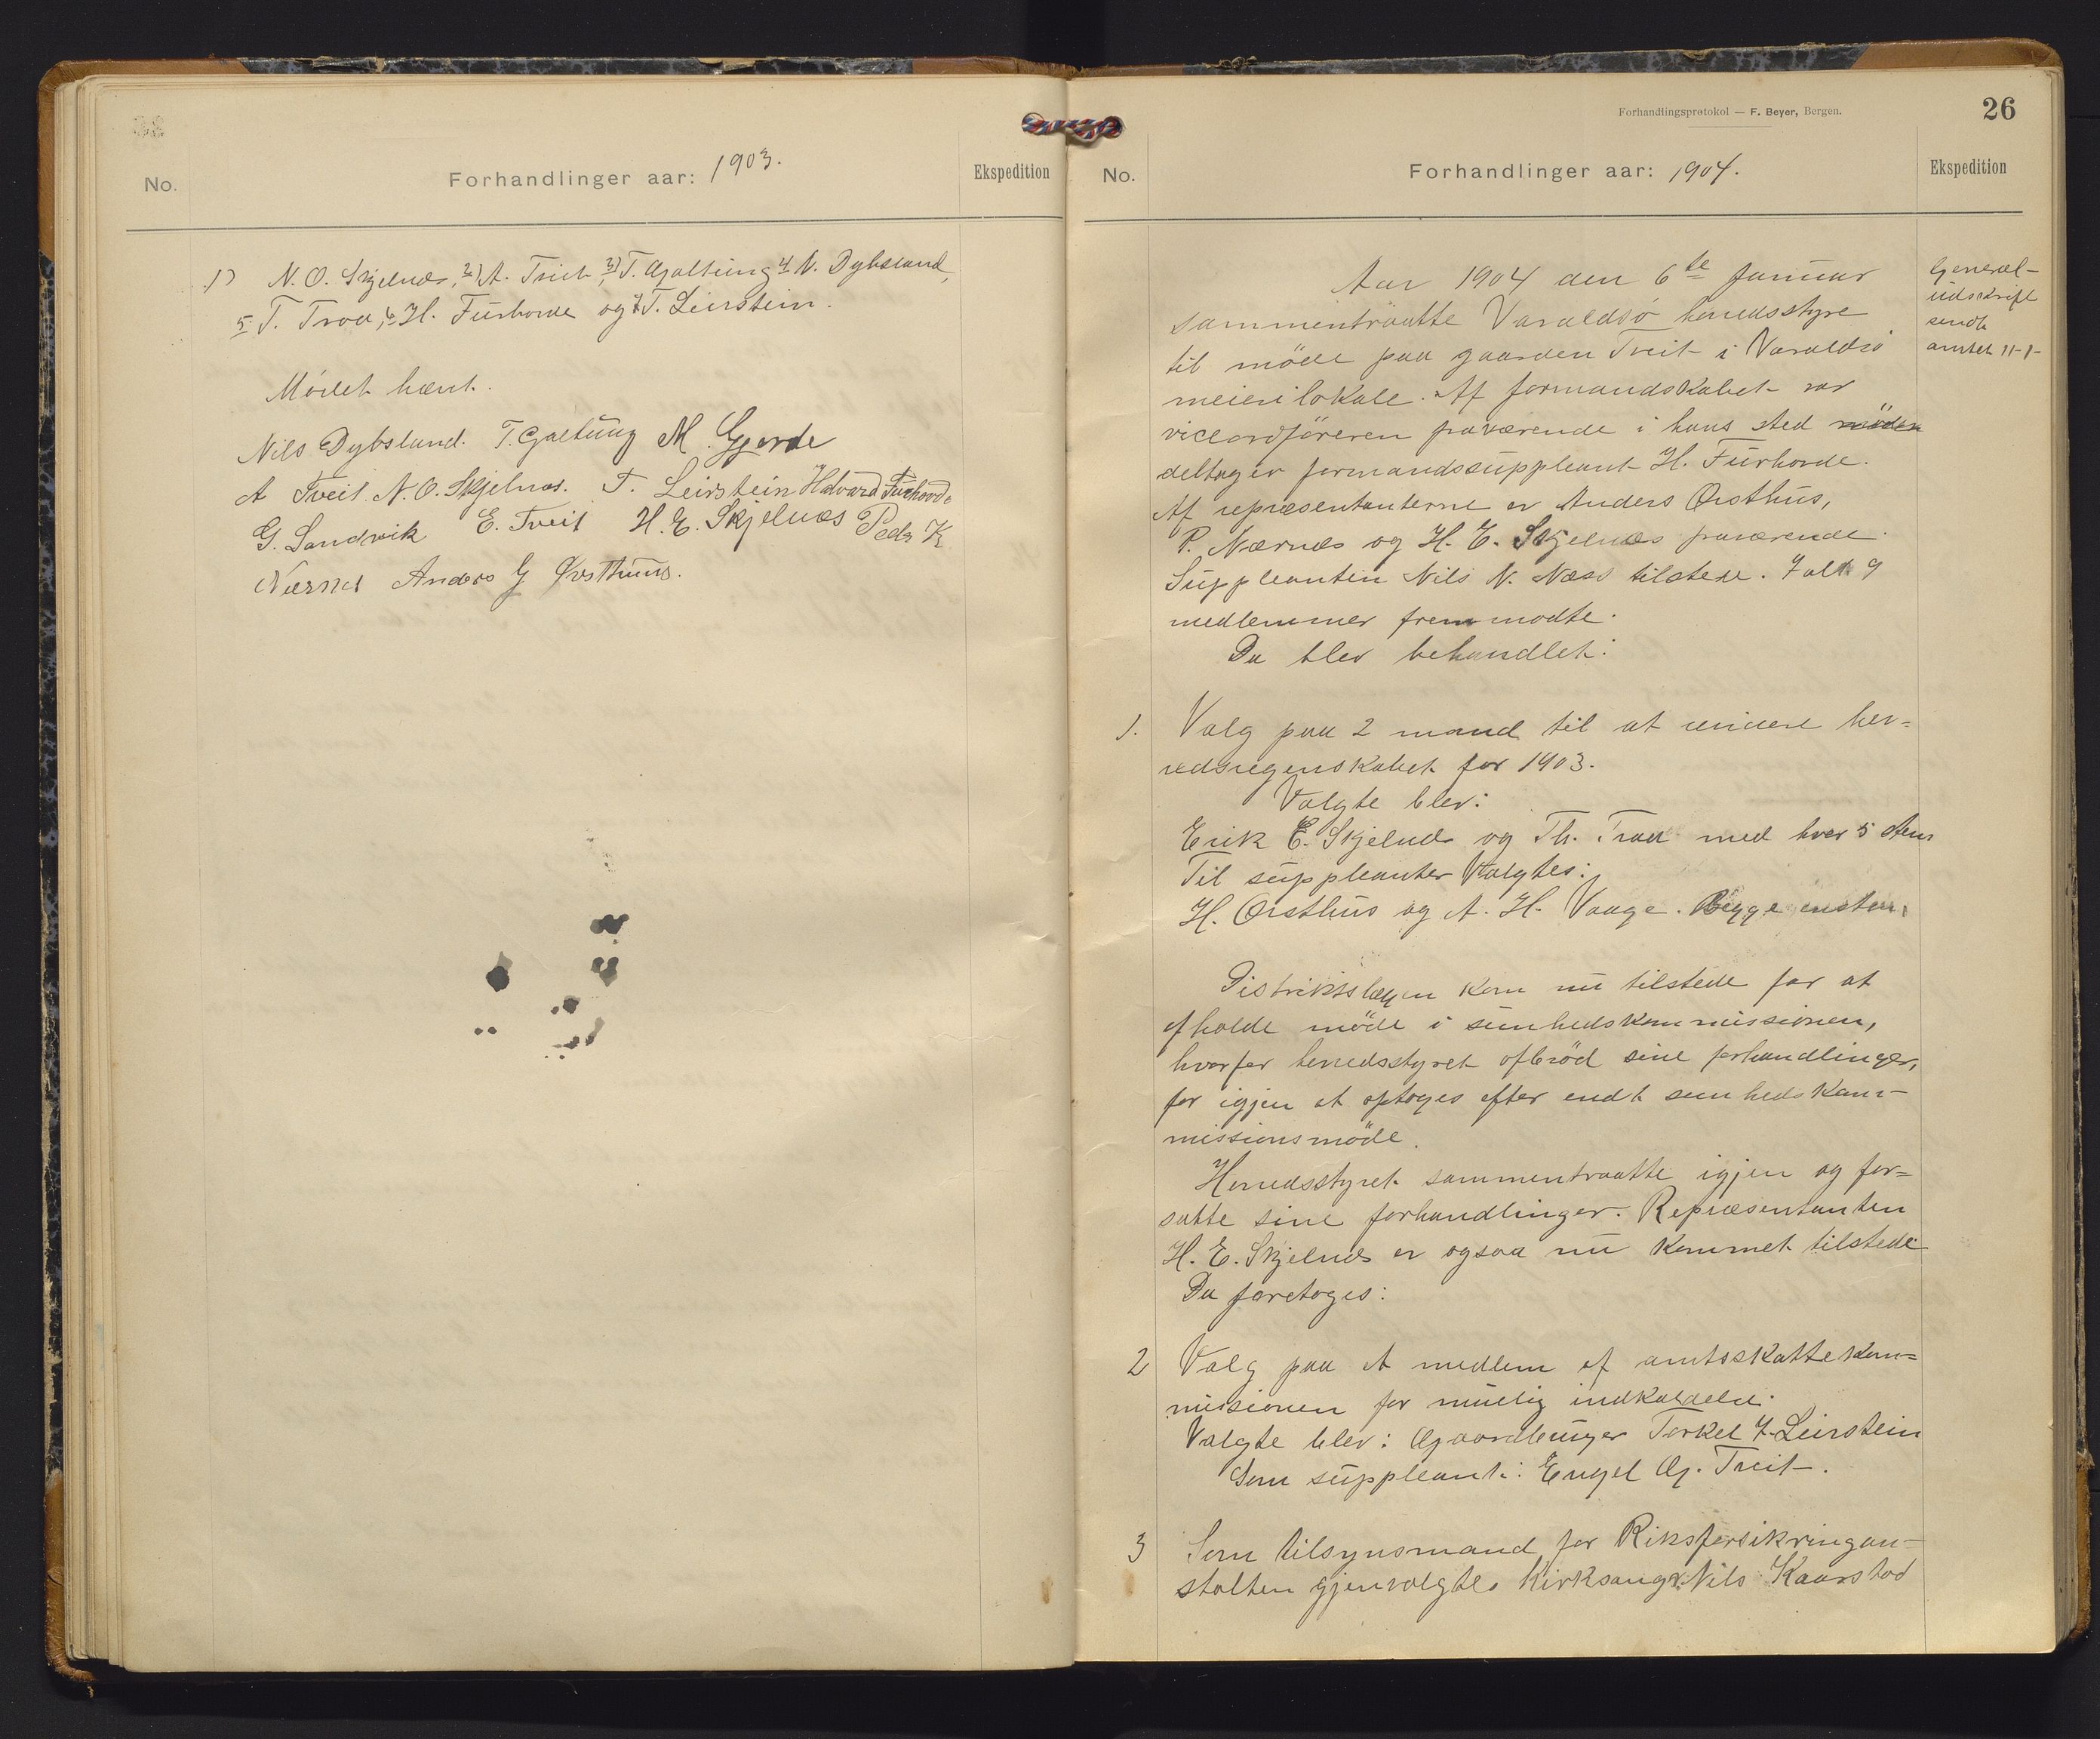 No.
Forhandlinger aar: 1903.
Ekspedition
1) N. O. Skjelnæs, 2) A. Tveit, 3) T. Gjaltung 4 N. Dybsland,
5. T. Traa, 6. H. Furhovde og 7 T. Leirstein.
Mödet hævt.
Nils Dybsland. T. Gjaltung M. Gjerde
A Tveit. N. O. Skjelnæs. T. Leirstein Halvard Furhovde
G. Sandvik E. Tveit H. E. Skjelnæs Peder K
Nærnes Anders G Østhuus.
Forhandlingsprotokol — F. Beyer, Bergen.
26
No.
Forhandlinger aar: 1904.
Ekspedition
Aar 1904 den 6te Januar
sammentraatte Varaldsö herredsstyre
til möde paa gaarden Tveit i Varaldsö
meierilokale. Af formandskabet var
viceordföreren fraværende i hans sted möder
deltager formandssuppleant H. Furhovde.
Af repræsentanterne er Anders Østhus,
P. Nærnes og H. E. Skjelnæs fraværende.
Suppleanten Nils N. Næss tilstede. Ialt 9
medlemmer fremmödte.
Da blev behandlet:
General-
udskrift
sendt
amtet 11-1-
1. Valg paa 2 mand til at revidere her-
redsregnskabet for 1903.
Valgte blev:
Erik E. Skjelnæs og Th. Traa med hver 5 stem
Til suppleanter valgtes:
H. Østhus og A. H. Vaage. Begge enstem.
Distriktslægen kom nu tilstede for at
afholde möde i sundhedskommissionen,
hvorfor herredsstyret afbröd sine forhandlinger,
for igjen at optages efter endt sundhedskom-
missionsmöde.
Herredsstyret sammentraatte igjen og for-
satte sine forhandlinger. Repræsentanten
H. E. Skjelnæs er ogsaa nu kommet tilstede
Da foretoges:
2 Valg paa et medlem af amtsskattekom-
missionen for mulig indkaldelse.
Valgte blev: Gaardbruger Torkel T. Leirstein
Som suppleant: Engel G. Tveit.
3 Som tilsynsmand for Riksforsikringan-
stalten gjenvalgtes kirksanger Nils Kaarstad